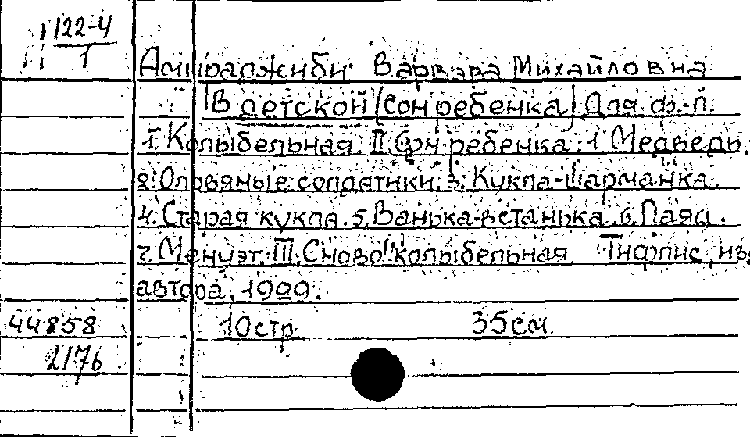 122-4
1
Амираджиби Варвара Михайловна
В детской (Сон ребенка) Для ф.-п.
I. Колыбельная. II. Сон ребенка: 1. Медведь.
2. Оловяные солдатики. 3. Кукла-шарманка.
4. Старая кукла. 5. Ванька-встанька. 6. Паяц.
7. Менуэт. III. Снова колыбельная Тифлис, из.
автора, 1909.
44858 10 стр. 35 см.
2176